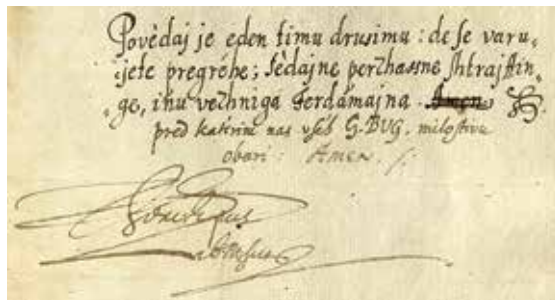 Povédaj je eden timu drusimu : de ſe varu„
„jete pregrehe; ſédajne perzhaſsne ſhtraſtin„
„ge, inu vezhniga ferdámajna. Amen
pred katerim nas vſéh G. BUG. miloſtivu
obari : Amen ./.